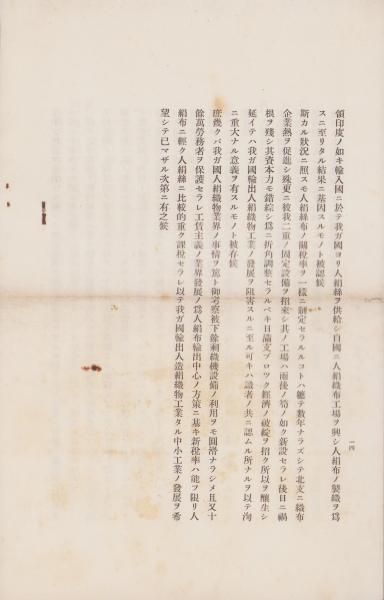 領印度ノ如キ輸入國ニ於テ我ガ國ヨリ人絹絲ヲ供給シ自國ニ人絹織布工場ヲ興シ人絹布ノ製織ヲ爲
スニ至リタル結果ニ基因スルモノト被認候
斯カル狀況ニ照スモ人絹絲布ノ關稅率ヲ一樣ニ制定セラルルコトハ軈テ數年ナラズシテ北支ニ織布
企業熱ヲ促進シ殊更ニ彼我二重ノ固定設備ヲ招來シ其ノ工場ハ雨後ノ筍ノ如ク新設セラレ後日ニ禍
根ヲ殘シ其資本力モ錯綜シ爲ニ折角調整セラルベキ日滿支ブロツク經濟ノ破綻ヲ招ク所以ヲ釀生シ
延イテハ我ガ國輸出人絹織物工業ノ發展ヲ阻害スルニ至ル可キハ識者ノ共ニ認ムル所ナルヲ以テ洵
ニ重大ナル意義ヲ有スルモノト被存候
庶幾クバ我ガ國人絹織物業界ノ事情ヲ篤ト御考察被下餘剩織機設備ノ利用ヲモ圓滑ナラシメ且又十
餘萬勞務者ヲ保護セラレ工賃主義ノ業界發展ノ爲人絹布輸出中心ノ方策ニ基キ新稅率ハ能フ限リ人
絹布ニ輕ク人絹絲ニ比較的重ク課稅セラレ以テ我ガ國輸出人造絹織物工業タル中小工業ノ發展ヲ希
望シテ已マザル次第ニ有之候
一四